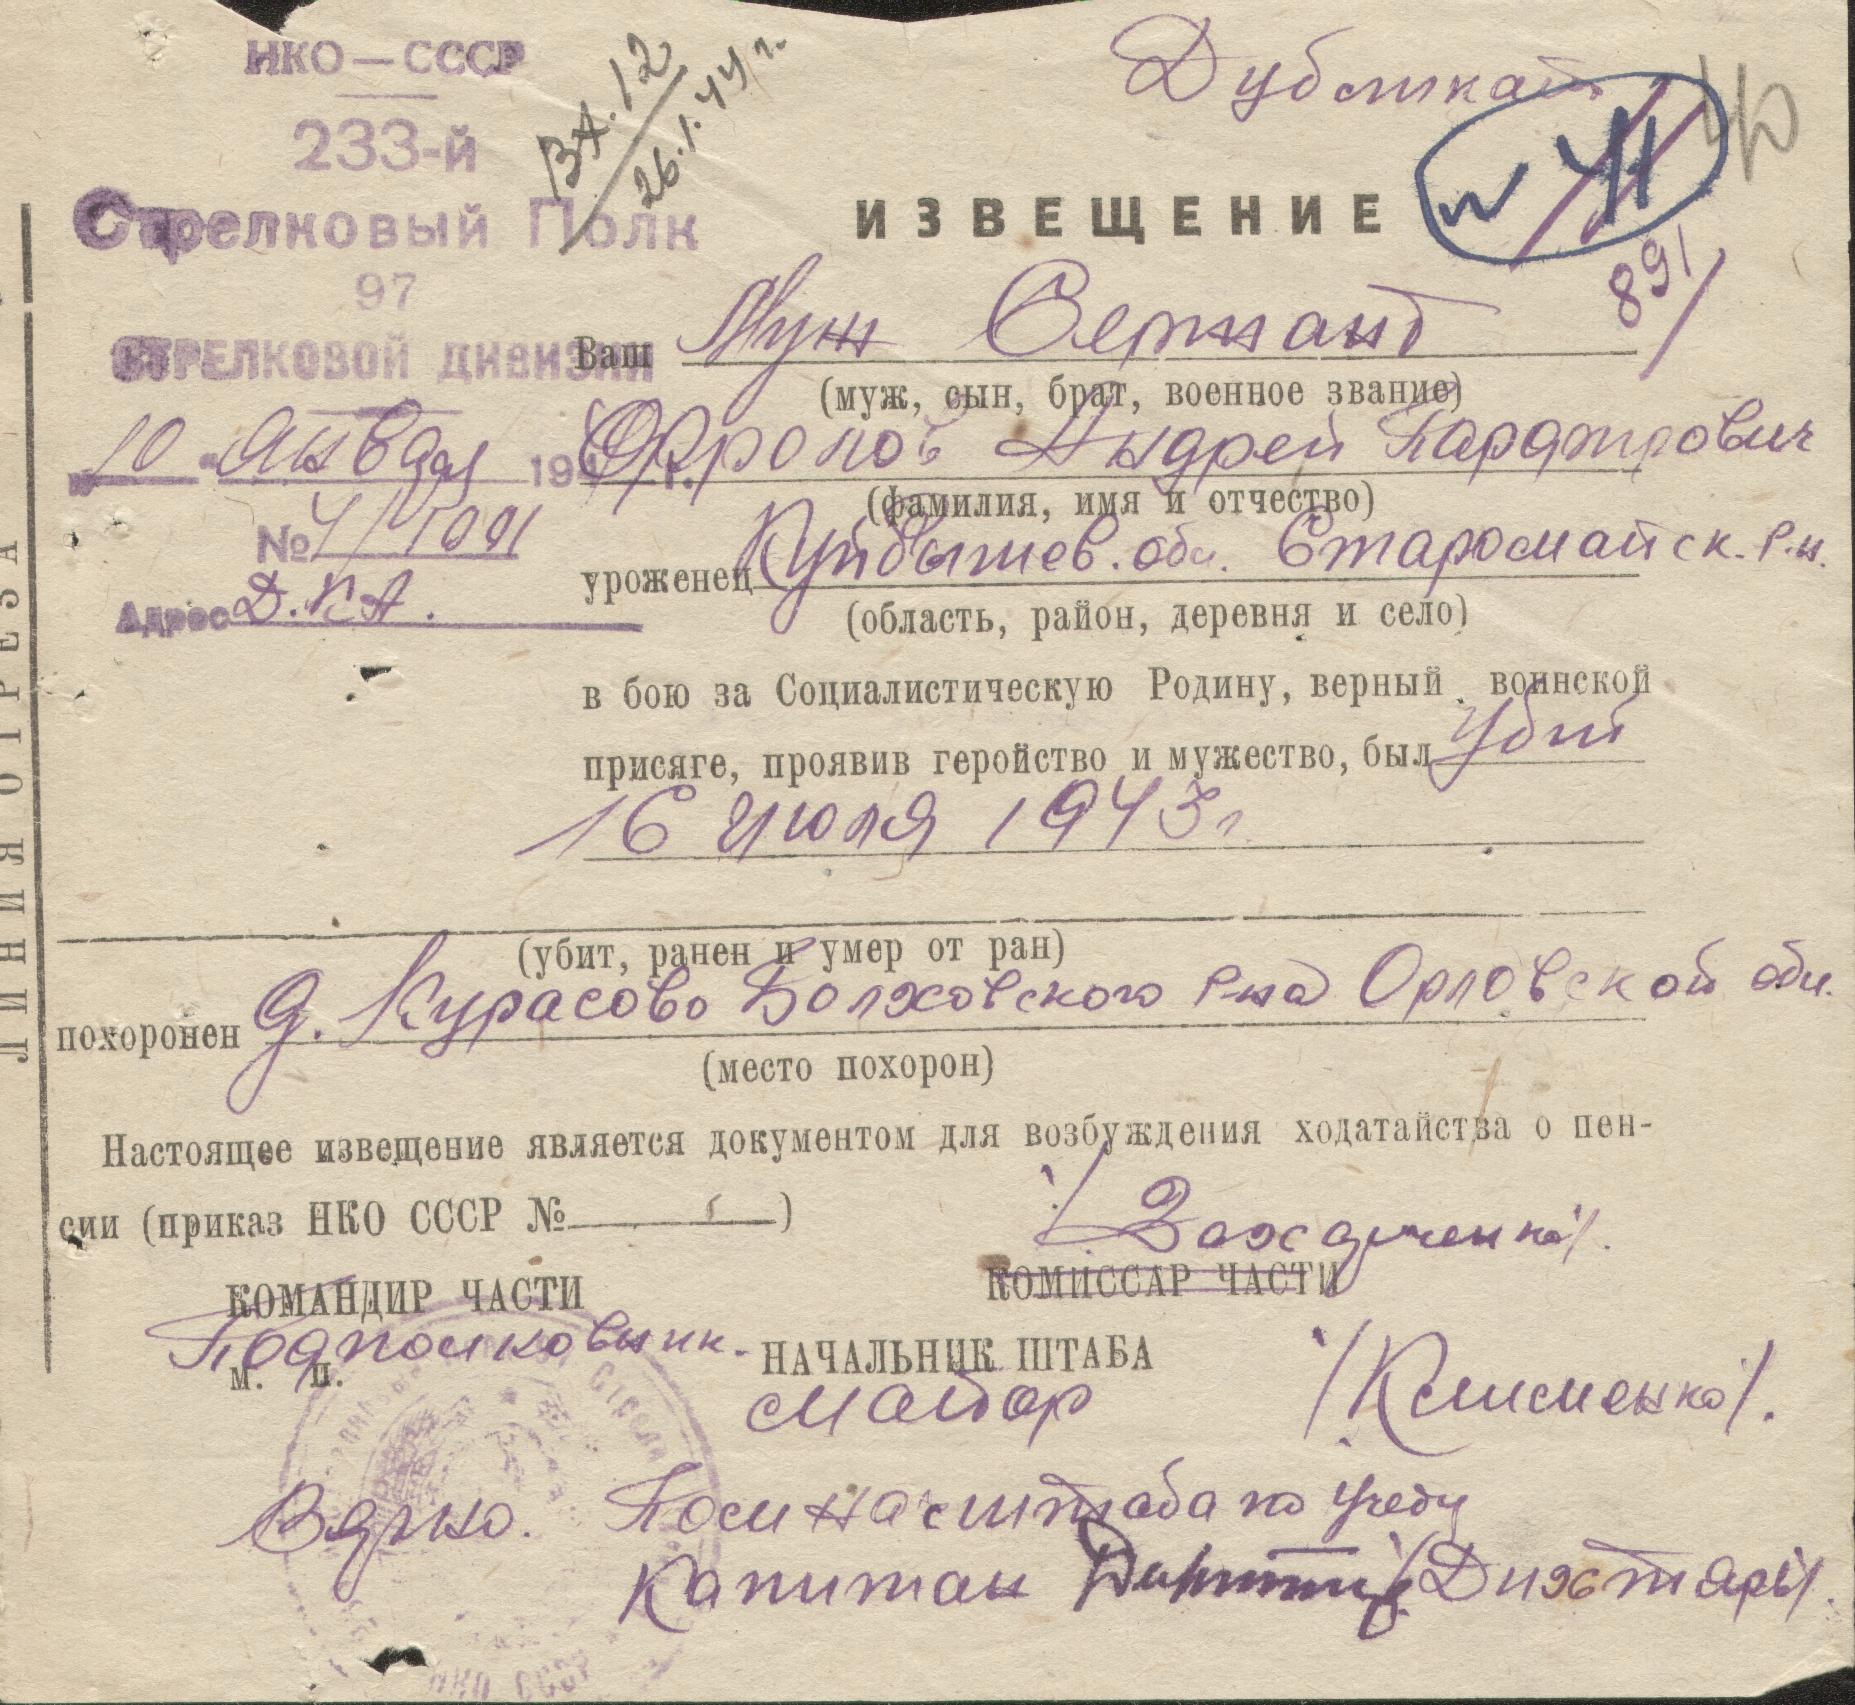 НКО—СССР
233-й
Стрелковый Полк
97
СТРЕЛКОВОЙ ДИВИЗИИ
"10" января 194 г.
№ 4/1091
Адрес Д.К.А.
ВХ.12
26.1.44 г.
Дубликат
N 41
40
891
ИЗВЕЩЕНИЕ
Ваш Муж Сержант
(муж, сын, брат, военное звание)
Андрей
(фамилия, имя и отчество)
уроженец Куйбышев. обл. Старомайск. р-н.
(область, район, деревня и село)
в бою за Социалистическую Родину, верный воинской
присяге, проявив геройство и мужество, был убит
16 июля 1943 г
(убит, ранен и умер от ран)
похоронен д. Курасово Болховского р-на Орловской обл.
(место похорон)
Настоящее извещение является документом для возбуждения ходатайства о пен-
сии (приказ НКО СССР № )
/Захарченко/.
КОМАНДИР ЧАСТИ
КОМИССАР ЧАСТИ
Подполковник.
м. п.
НАЧАЛЬНИК ШТАБА
майор /Клименко/.
Верно. Пом нач штаба по учету
Капитан
НКО СССР
ЛИНИЯ ОТРЕЗА